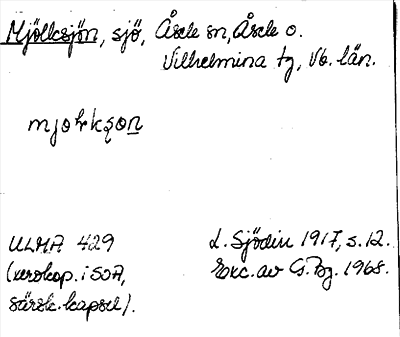 Mjölksjön, sjö, Åsele sn, Åsele o.
Vilhelmina tg, Vb. län.
mjo̵lksǫn
ULMA 429
(xerokop. i SOA,
särsk. kapsel).
L. Sjödin 1917, s. 12.
Exc. av G. Bg. 1968.